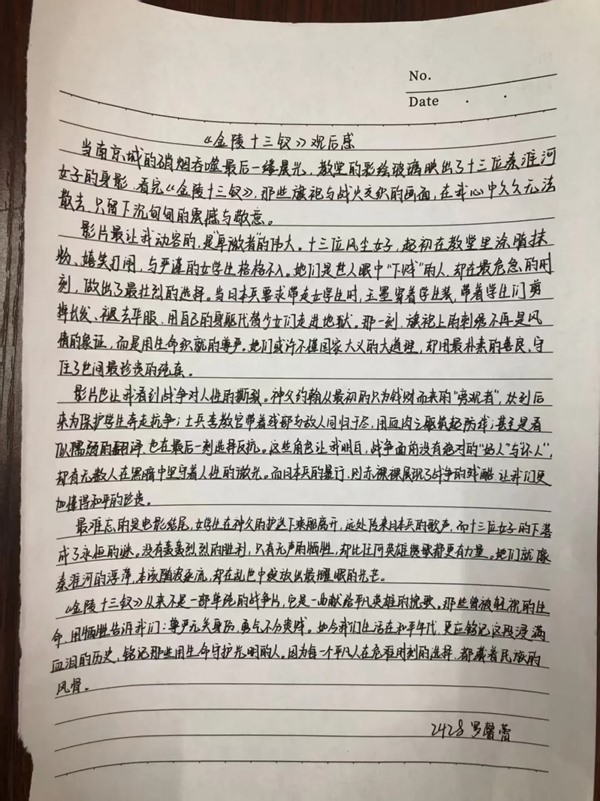 No.
Date . .
《金陵十三钗》观后感
当南京城的硝烟吞噬最后一缕晨光，教堂的彩绘玻璃映出了十三位秦淮河
女子的身影，看完《金陵十三钗》，那些旗袍与战火交织的画面，在我心中久久无法
散去，只留下沉甸甸的震撼与敬意。
影片最让我动容的，是"卑微者"的伟大。十三位风尘女子，起初在教堂里涂脂抹
粉、嬉笑打闹，与严谨的女学生格格不入。她们是世人眼中"下贱"的人，却在最危急的时
刻，做出了最壮烈的选择。当日本兵要求带走女学生时，玉墨穿着学生装，带着学生们剪
掉长发、褪去华服，用自己的身躯代替少女们走进地狱。那一刻，旗袍上的刺绣不再是风
情的象征，而是用生命织就的尊严。她们或许不懂国家大义的大道理，却用最朴素的善良，守
住了世间最珍贵的纯真。
影片也让我看到战争对人性的撕裂。神父约翰从最初的只为钱财而来的"旁观者"，放到后
来为保护学生奔走抗争；士兵李教官带着残部与敌人同归于尽，用血肉之躯筑起防线；甚至是看
似懦弱的翻译，也在最后一刻选择反抗。这些角色让我明白，战争面前没有绝对的"好人"与"坏人"，
却有无数人在黑暗中坚守着人性的微光。而日本兵的暴行，则赤裸裸展现了战争的残酷，让我们更
加懂得和平的珍贵。
最难忘的是电影结尾，女学生在神父的护送下乘船离开，远处传来日本兵的歌声，而十三位女子的下落
成了永恒的谜。没有轰轰烈烈的胜利，只有无声的牺牲，却比任何英雄赞歌都更有力量。她们就像
秦淮河的浮萍，本该随波逐流，却在乱世中绽放出最耀眼的光芒。
《金陵十三钗》从来不是一部单纯的战争片，它是一曲献给平凡英雄的挽歌。那些曾被轻视的生
命，用牺牲告诉我们：尊严无关身份，勇气不分贵贱。如今我们生活在和平年代，更应铭记这段浸满
血泪的历史，铭记那些用生命守护光明的人。因为每一个平凡人在危难时刻的选择，都藏着民族的
风骨。
2428 罗馨蕾